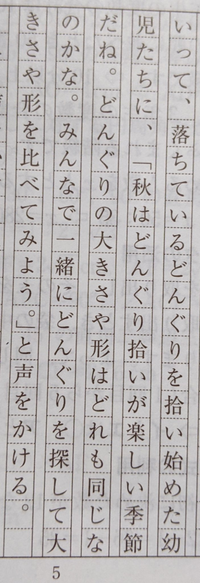 いって、落ちているどんぐりを拾い始めた幼
児たちに、「秋はどんぐり拾いが楽しい季節
だね。どんぐりの大きさや形はどれも同じな
のかな。みんなで一緒にどんぐりを探して大
きさや形を比べてみよう。」と声をかける。
5